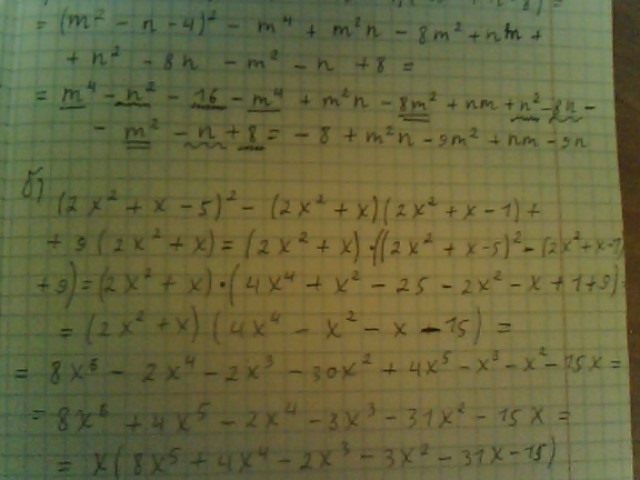 = (m² - n - 4)² - m⁴ + m²n - 8m² + nm +
+ n² - 8n - m² - n + 8 =
= m⁴ - n² - 16 - m⁴ + m²n - 8m² + nm + n² - 8n -
- m² - n + 8 = - 8 + m²n - 9m² + nm - 9n
б)
(2x² + x - 5)² - (2x² + x)(2x² + x - 1) +
+ 9(2x² + x) = (2x² + x)·((2x² + x - 5)² - (2x² + x - 1)
+ 9) = (2x² + x)·(4x⁴ + x² - 25 - 2x² - x + 1 + 9) =
= (2x² + x)(4x⁴ - x² - x - 15) =
= 8x⁶ - 2x⁴ - 2x³ - 30x² + 4x⁵ - x³ - x² - 15x =
= 8x⁶ + 4x⁵ - 2x⁴ - 3x³ - 31x² - 15x =
= x(8x⁵ + 4x⁴ - 2x³ - 3x² - 31x - 15)